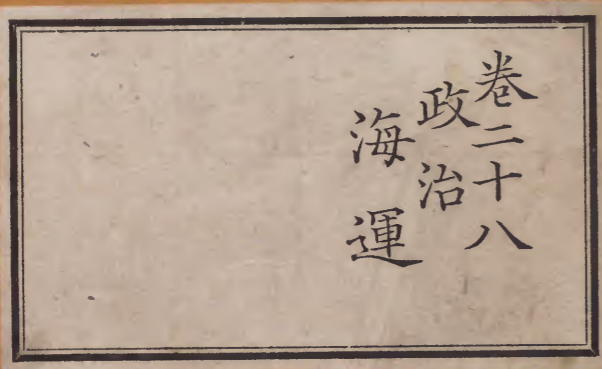 卷二十八
政治
海運